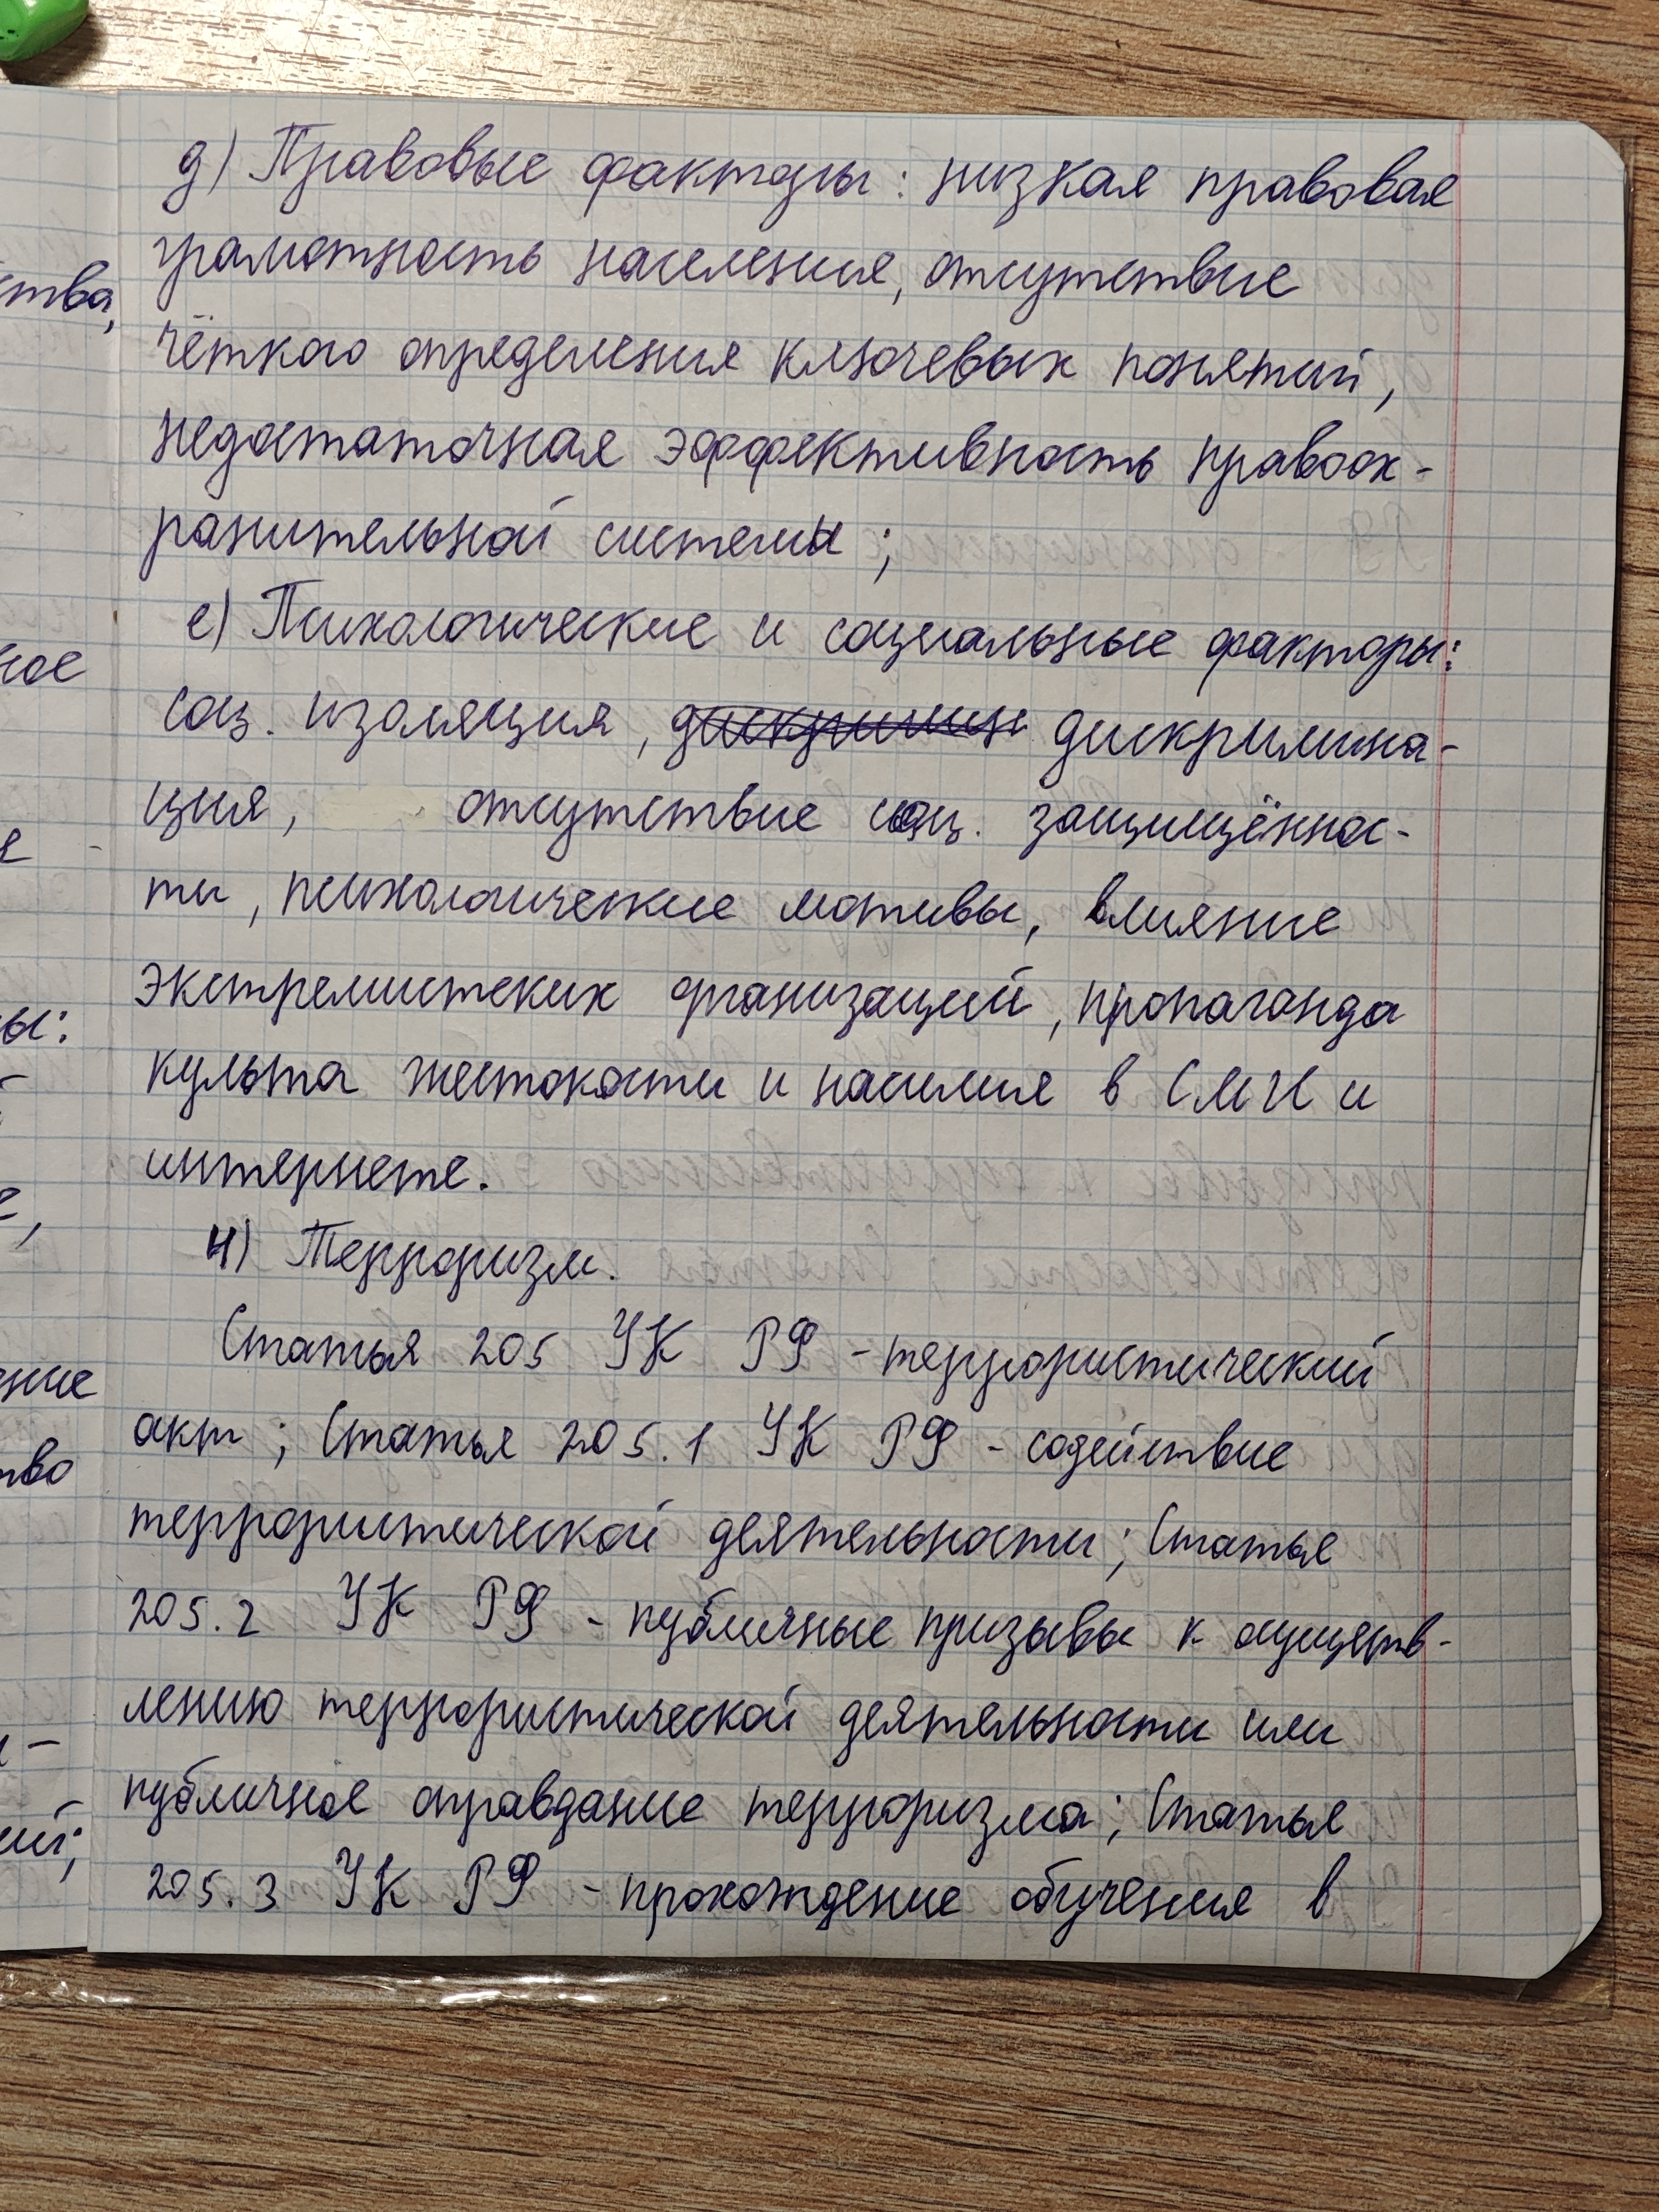 д) Правовые факторы: низкая правовая
грамотность населения, отсутствие
чёткого определения ключевых понятий,
недостаточная эффективность правоох-
ранительной системы;
е) Психологические и социальные факторы:
соц. изоляция, дискримин дискримина-
ция, отсутствие соц. защищённос-
ти, психологические мотивы, влияние
экстремистских организаций, пропаганда
культа жестокости и насилия в СМИ и
интернете.
4) Терроризм.
Статья 205 УК РФ - террористический
акт; Статья 205.1 УК РФ - содействие
террористической деятельности; Статья
205.2 УК РФ - публичные призывы к осуществ-
лению террористической деятельности или
публичное оправдание терроризма; Статья
205.3 УК РФ - прохождение обучения в